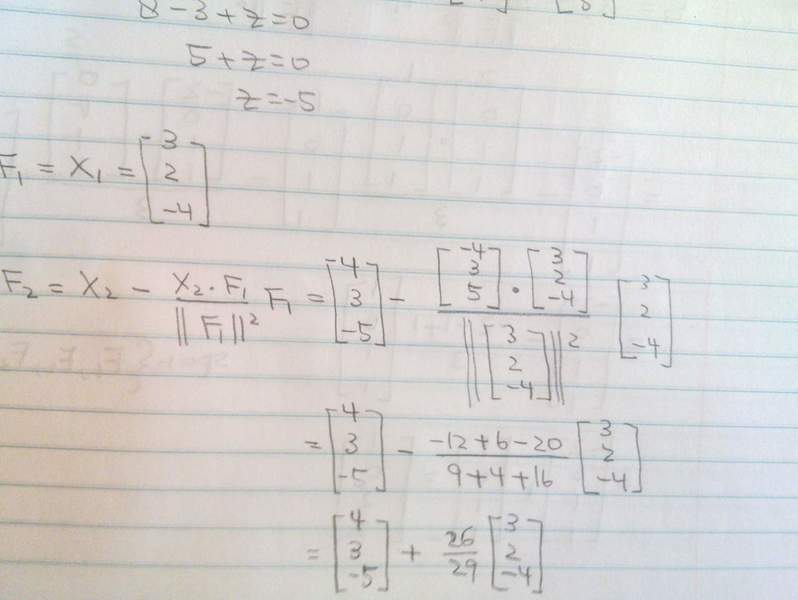 8 - 3 + z = 0
5 + z = 0
z = -5
F₁ = X₁ = [3 2 -4]
F₂ = X₂ - X₂·F₁ / ||F₁||² F₁ = [4 3 -5] - [-4 3 5]·[3 2 -4] / ||[3 2 -4]||² [3 2 -4]
= [4 3 -5] - -12+6-20 / 9+4+16 [3 2 -4]
= [4 3 -5] + 26/29 [3 2 -4]